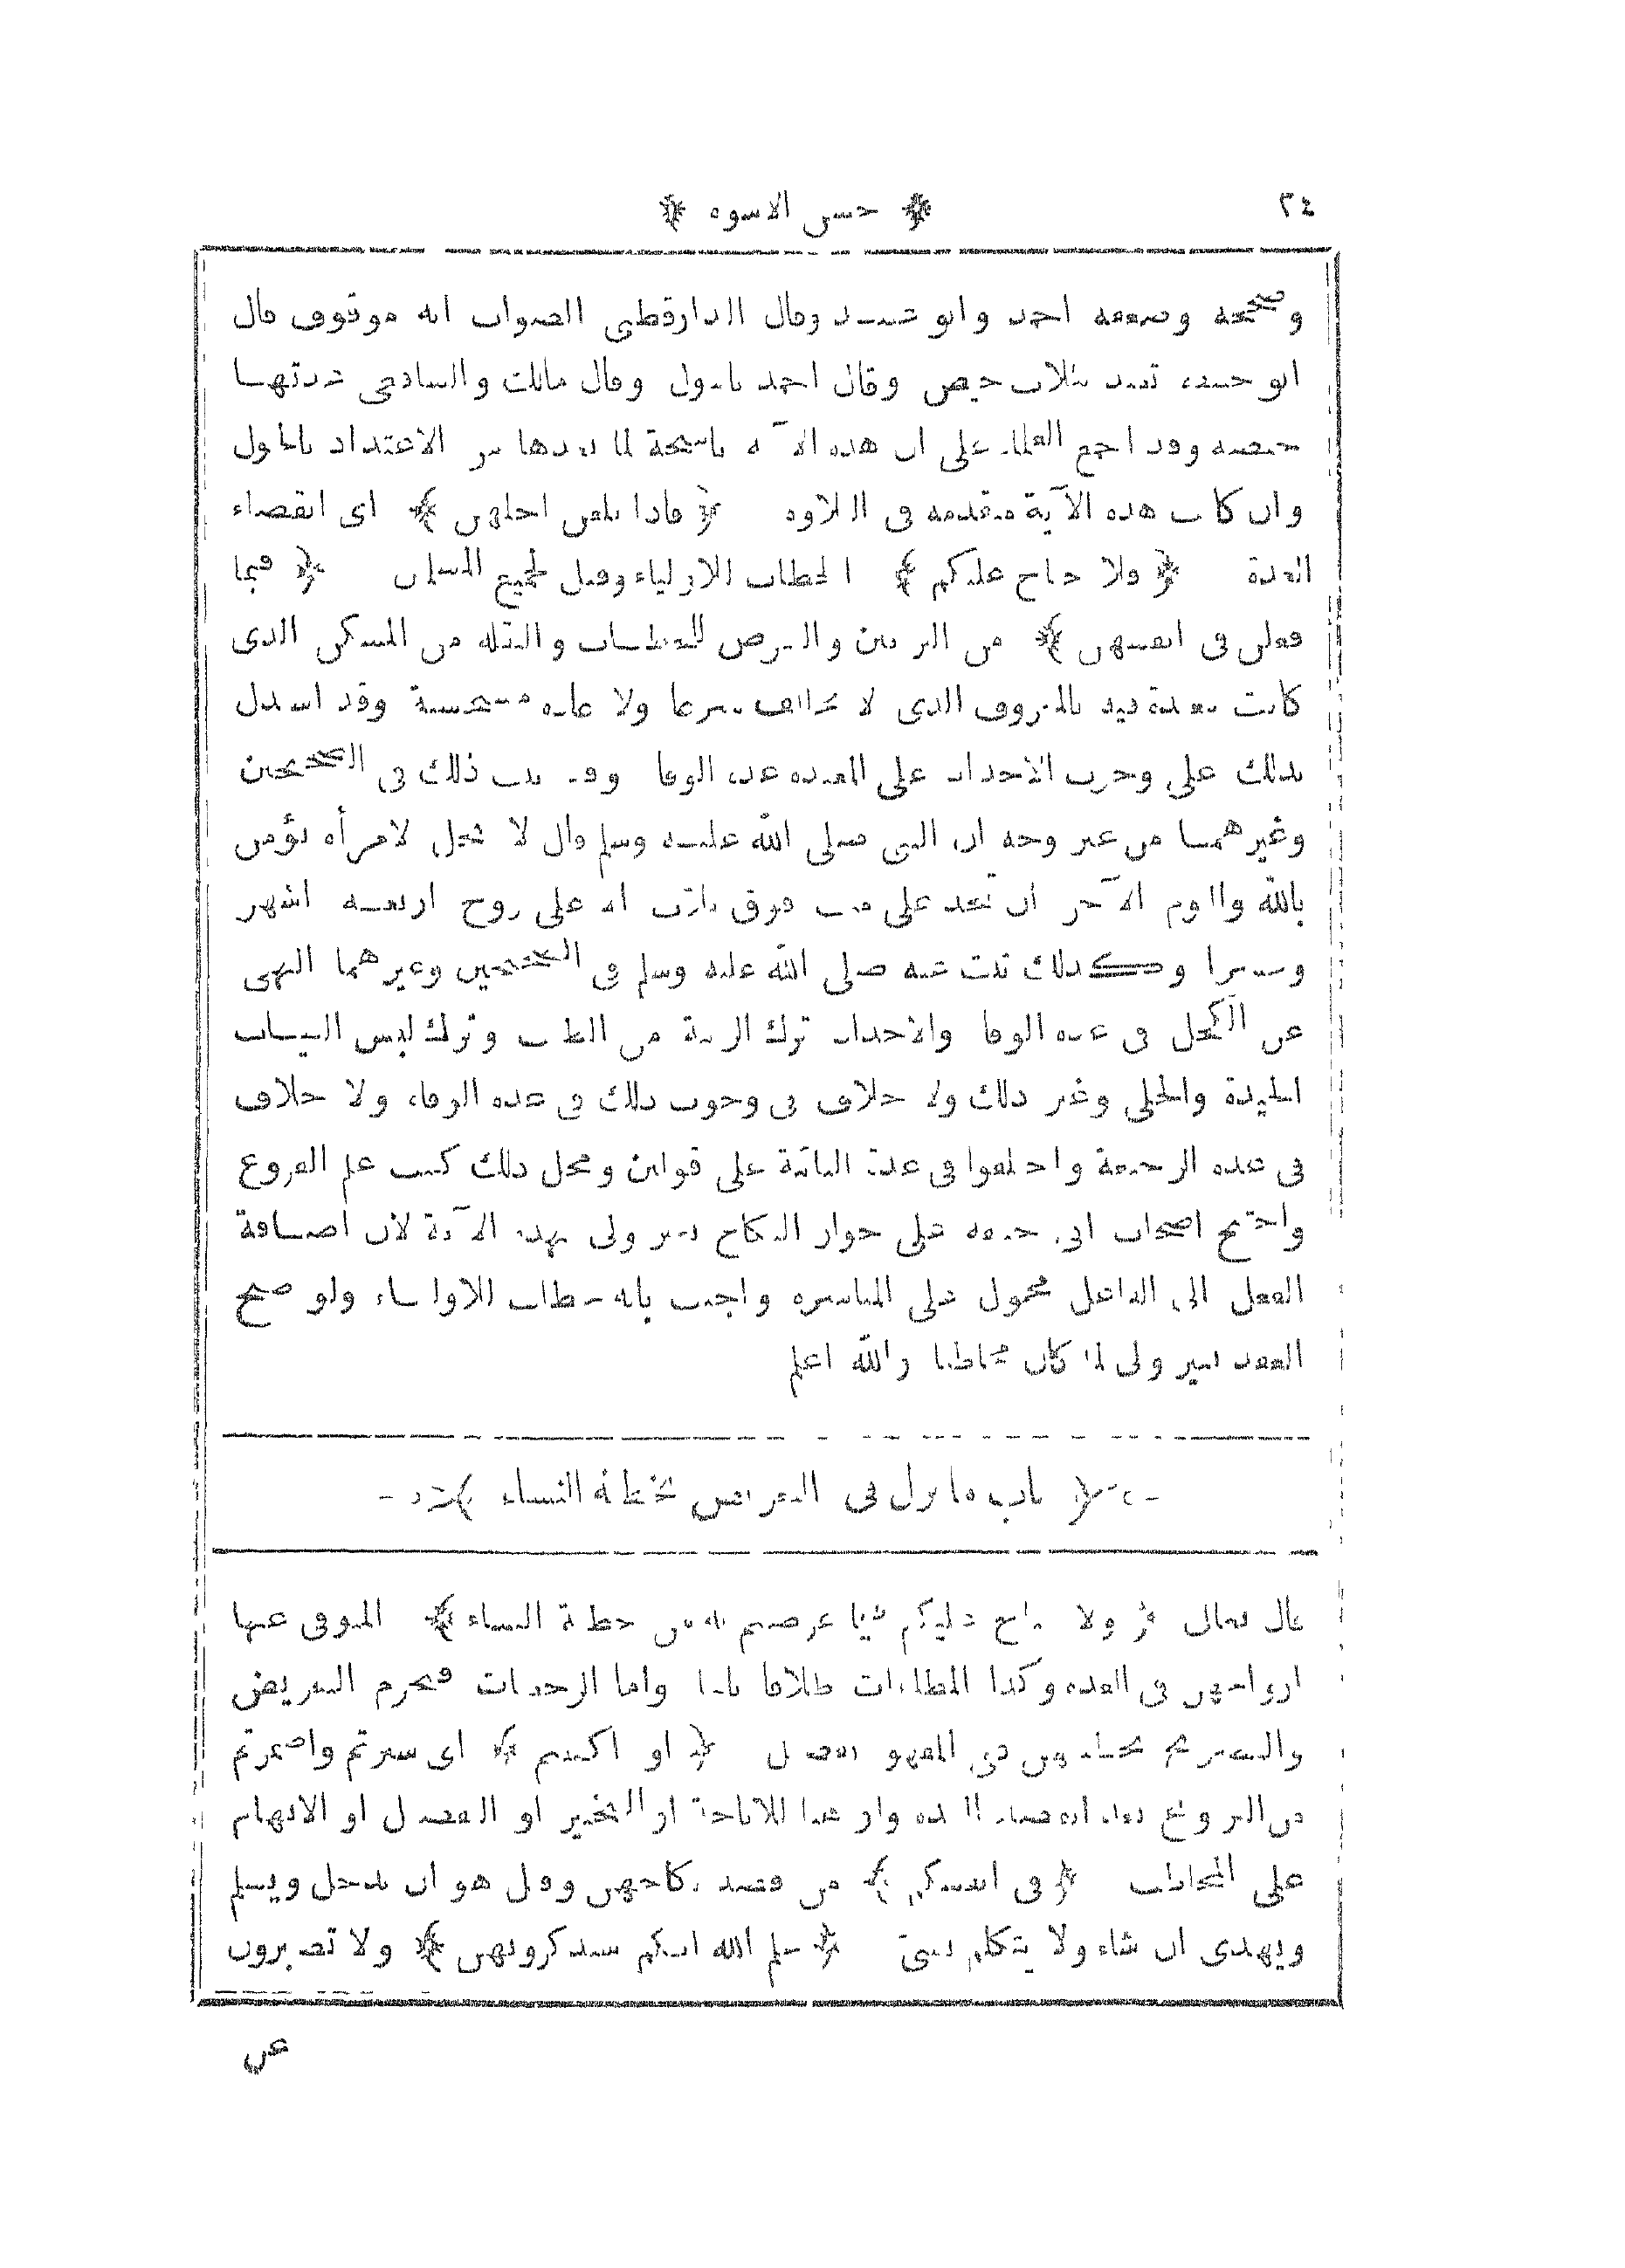 ٣٤ ﴿ حسن الاسوة ﴾
وصححه وضعفه احمد وابو عبيد وقال الدارقطنى الصواب انه موقوف قال
ابو حنيفة تعتد بثلاث حيض وقال احمد وقال مالك والشافعى عدتها
حيضة وقد اجمع العلماء على ان هذه الآية ناسخة لما بعدها من الاعتداد بالحول
وان كانت هذه الآية متقدمة فى التلاوة ﴿ فاذا بلغن اجلهن ﴾ اى انقضاء
العدة ﴿ ولا جناح عليكم ﴾ الخطاب للاولياء وقيل لجميع المسلمين ﴿ فيما
فعلن فى انفسهن ﴾ من التزين والتعرض للخطاب والنقلة من المسكن الذى
كانت معتدة فيه بالمعروف الذى لا يخالف شرعا ولا عادة مستحسنة وقد استدل
بذلك على وجوب الاحداد على المعتدة عدة الوفاة وقد ثبت ذلك فى الصحيحين
وغيرهمـا من غير وجه ان النبى صلى الله عليه وسلم قال لا يحل لامرأة تؤمن
بالله واليوم الآخر ان تحد على ميت فوق ثلاث الا على زوج اربعة اشهر
وعشرا وكذلك ثبت عنه صلى الله عليه وسلم فى الصحيحين وغيرهما النهى
عن الكحل فى عدة الوفاة والاحداد ترك الزينة من الطيب وترك لبس الثياب
الجيدة والحلى وغير ذلك ولا خلاف فى وجوب ذلك فى عدة الوفاة ولا خلاف
فى عدة الرجعية واختلفوا فى عدة البائنة على قولين ومحل ذلك كتب علم الفروع
واحتج اصحاب ابى حنيفة على جواز النكاح بغير ولى بهذه الآية لان اضافة
الفعل الى الفاعل محمول على المباشرة واجيب بانه خطاب للاولياء ولو صح
العقد بغير ولى لما كان مخاطبا والله اعلم
﴿ باب ما نزل فى التعريض بخطبة النساء ﴾
قال تعالى ﴿ ولا جناح عليكم فيما عرضتم به من خطبة النساء ﴾ المتوفى عنها
ازواجهن فى العدة وكذا المطلقات طلاقا بائنا واما الرجعيات فيحرم التعريض
والتصريح بخطبتهن ﴿ او اكننتم ﴾ اى سترتم واضمرتم
من التزويج بعد انقضاء العدة واو هنا للاباحة او التخيير او التفصيل او الابهام
على المخاطب ﴿ فى انفسكم ﴾ من قصد نكاحهن وقيل هو ان يدخل ويسلم
ويهدى ان شاء ولا يتكلم بشئ ﴿ علم الله انكم ستذكرونهن ﴾ ولا تصبرون
عن